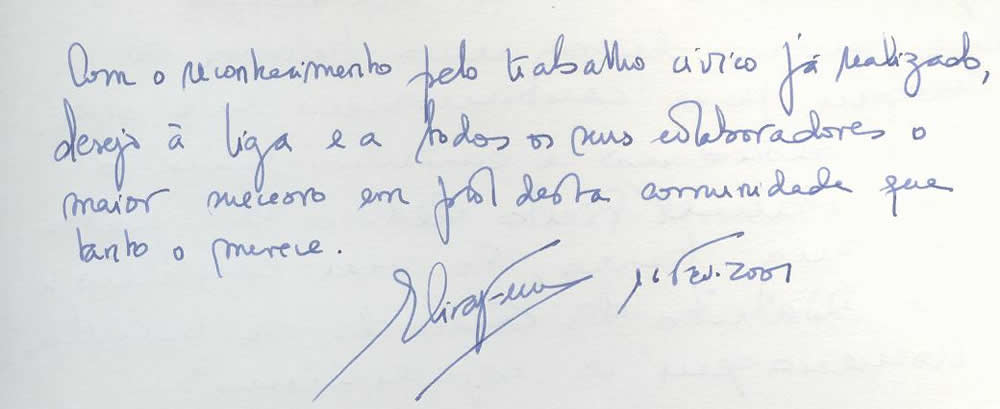 Com o reconhecimento pelo trabalho cívico já realizado,
desejo à Liga e a todos os seus colaboradores o
maior sucesso em prol desta comunidade que
tanto o merece.
16 Fev. 2001